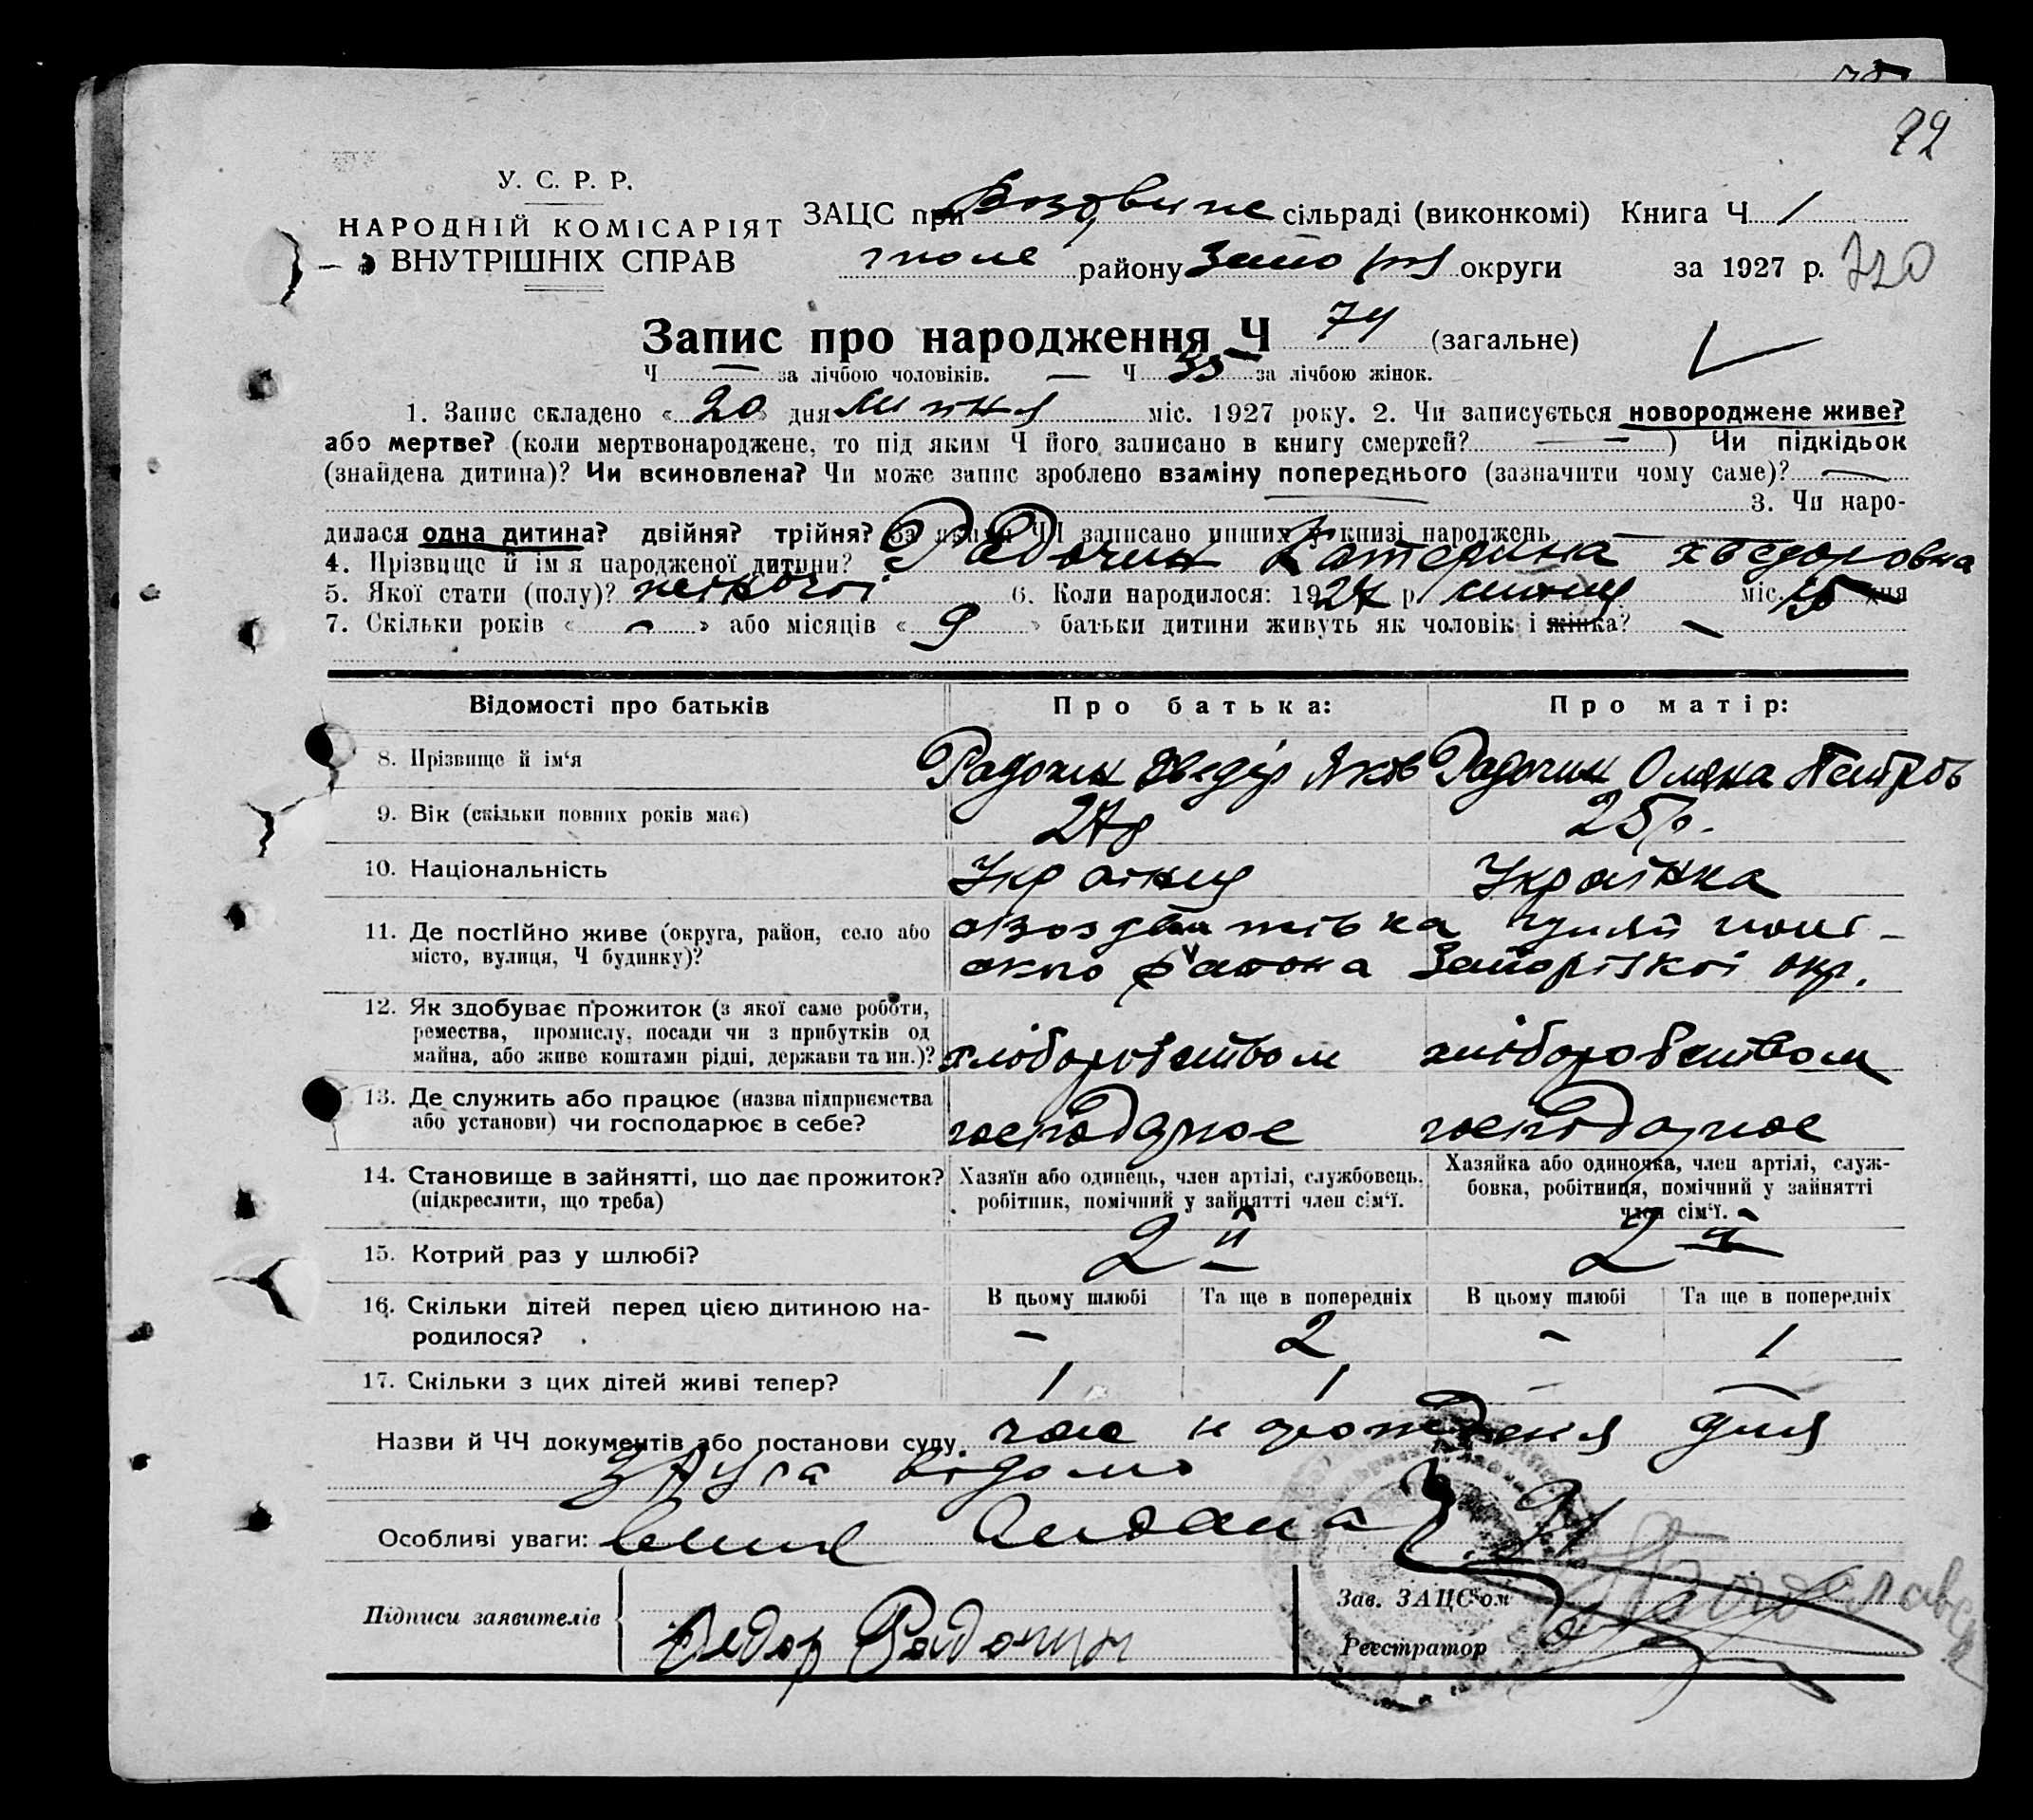 72
У. С. Р. Р.
НАРОДНІЙ КОМІСАРІЯТ
ВНУТРІШНІХ СПРАВ
ЗАЦС при сільраді (виконкомі) Книга Ч 1
району округи за 1927 р. 720
Запис про народження Ч 74 (загальне)
Ч — за лічбою чоловіків. — Ч 35 за лічбою жінок.
1. Запис складено « 20 » дня липня міс. 1927 року. 2. Чи записується новороджене живе?
або мертве? (коли мертвонароджене, то під яким Ч його записано в книгу смертей? — ) Чи підкідьок
(знайдена дитина)? Чи всиновлена? Чи може запис зроблено взаміну попереднього (зазначити чому саме)? —
3. Чи наро-
дилася одна дитина? двійня? трійня? За яким ЧЧ записано инших у книзі народжень —
4. Прізвище й ім'я народженої дитини? Радочин Катерина Хведоровна
5. Якої стати (полу)? жіночої 6. Коли народилося: 1927 р. липня міс. 15 дня
7. Скільки років « — » або місяців « 9 » батьки дитини живуть як чоловік і жінка? —
Відомості про батьків Про батька: Про матір:
8. Прізвище й ім'я Радочин Хведір Яков Радочин Оляна Петров
9. Вік (скільки повних років має) 27р 25р.
10. Національність Українец Українка
11. Де постійно живе (округа, район, село або
місто, вулиця, Ч будинку)?
района Запорізкої окр.
12. Як здобуває прожиток (з якої саме роботи,
ремества, промислу, посади чи з прибутків од
майна, або живе коштами рідні, держави та ин.)? хліборобством хліборобством
13. Де служить або працює (назва підприємства
або установи) чи господарює в себе? господарює господарює
14. Становище в зайнятті, що дає прожиток?
(підкреслити, що треба)
Хазяїн або одинець, член артілі, службовець,
робітник, помічний у зайнятті член сім'ї.
Хазяйка або одиночка, член артілі, служ-
бовка, робітниця, помічний у зайнятті
член сім'ї.
15. Котрий раз у шлюбі? 2й 2й
16. Скільки дітей перед цією дитиною на-
родилося?
В цьому шлюбі Та ще в попередніх В цьому шлюбі Та ще в попередніх
— 2 — 1
17. Скільки з цих дітей живі тепер? 1 1 — —
Назви й ЧЧ документів або постанови суду.
відомо
Особливі уваги:
Підписи заявителів Федор Радочин
Зав. ЗАЦС'ом
Реєстратор